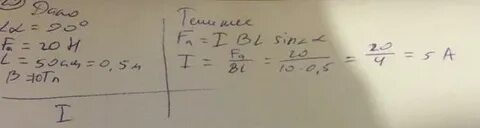 Дано
∠α = 90°
Fa = 20 Н
L = 50см = 0,5м
B = 10Тл
I
Решение
Fa = I BL sin∠α
I = Fa/BL = 20/10·0,5 = 20/4 = 5 А